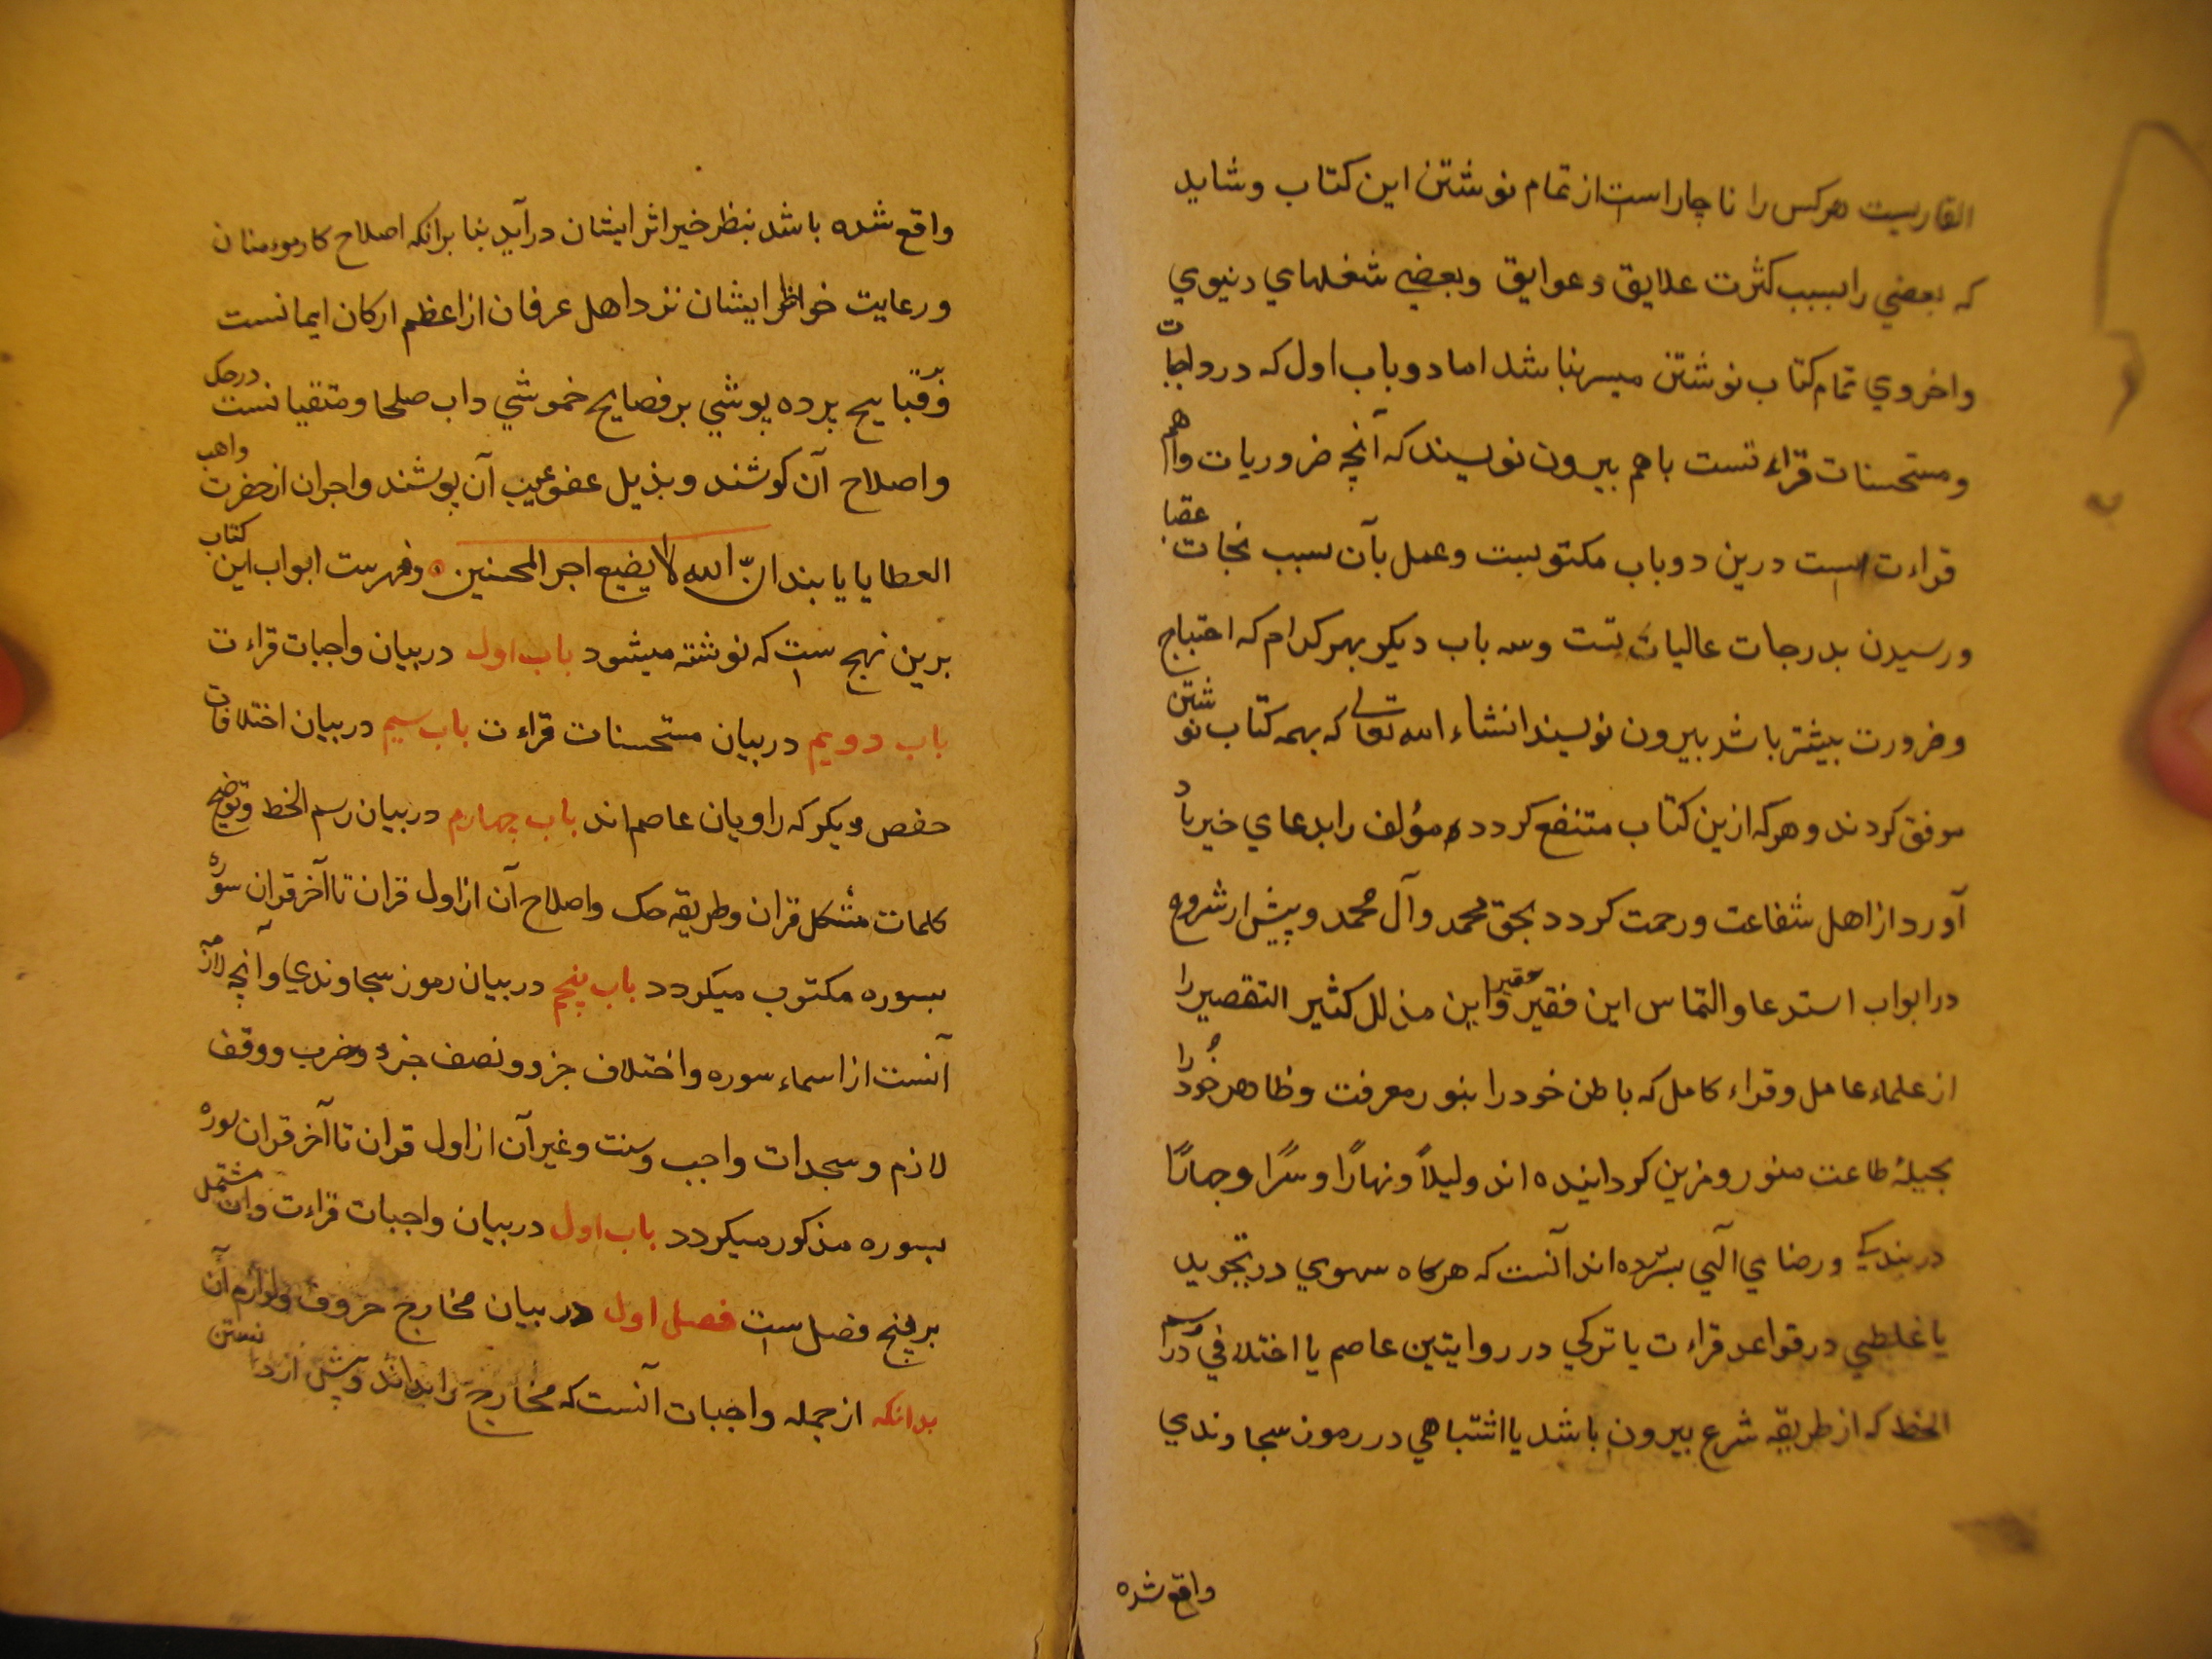 القاریست هرکس را ناچار است از تمام نوشتن این کتاب و شاید
که بعضی را بسبب کثرت علایق و عوایق و بعضی شغلهای دنیوی
و اخروی تمام کتاب نوشتن میسر نباشد اما دو باب اول که در واجبات
و مستحسنات قراءتست باهم بیرون نویسند که آنچه ضروریات و اهم
قراءت است درین دو باب مکتوبست و عمل بآن سبب نجات عقبا
و رسیدن بدرجات عالیات تست و سه باب دیکر بهر کدام که احتیاج
و ضرورت بیشتر باشد بیرون نویسند انشاء الله تعالی که بهمه کتاب نوشتن
موفق کردند و هر که ازین کتاب متنفع کردد و مؤلف را بدعای خیر یاد
آورد از اهل شفاعت و رحمت کردد بحق محمد و آل محمد و پیش از شروع
در ابواب استدعا و التماس این فقیر حقیر و این مذلل کثیر التقصیر را
از علماء عامل و قراء کامل که باطن خود را بنور معرفت و ظاهر خود را
بحیلهٔ طاعت منور و مزین کردانیده اند و لیلاً و نهارًا و سرًا و جهارًا
در بندکی و رضای آلهی بسر برده اند آنست که هرکاه سهوی در تجوید
یا غلطی در قواعد قراءت یا ترکی در روایتین عاصم یا اختلافی در رسم
الخط که از طریقه شرع بیرون باشد یا اشتباهی در رموز سجاوندی
واقع شده
واقع شده باشد بنظر خیر اثر ایشان درآید بنا برانکه اصلاح کار موءمنان
و رعایت خواطر ایشان نزد اهل عرفان از اعظم ارکان ایمانست
و قبایح پرده پوشی بر فصایح خموشی داب صلحا و متقیانست در حک
و اصلاح آن کوشند و بذیل عفو عیب آن پوشند و اجران از حضرت واهب
العطایا یابند انّ الله لا یضیع اجر المحسنین و فهرست ابواب این کتاب
برین نهج ست که نوشته میشود باب اول در بیان واجبات قراءت
باب دویم در بیان مستحسنات قراءت باب سیم در بیان اختلافات
حفص و بکر که راویان عاصم اند باب چهارم در بیان رسم الخط و توضیح
کلمات مشکل قران و طریقه حک و اصلاح آن از اول قران تا آخر قران سوره
بسوره مکتوب میکردد باب پنجم در بیان رموز سجاوندی و آنچه لازم
آنست از اسماء سوره و اختلاف جزو و نصف جزء و حزب و وقف
لازم و سجدات واجب و سنت و غیر آن از اول قران تا آخر قران سوره
بسوره مذکور میکردد باب اول در بیان واجبات قراءت و ان مشتمل
بر پنج فصل ست فصل اول در بیان مخارج حروف و لوازم آن
بدانکه از جمله واجبات آنست که مخارج را بداند و پیش از دانستن